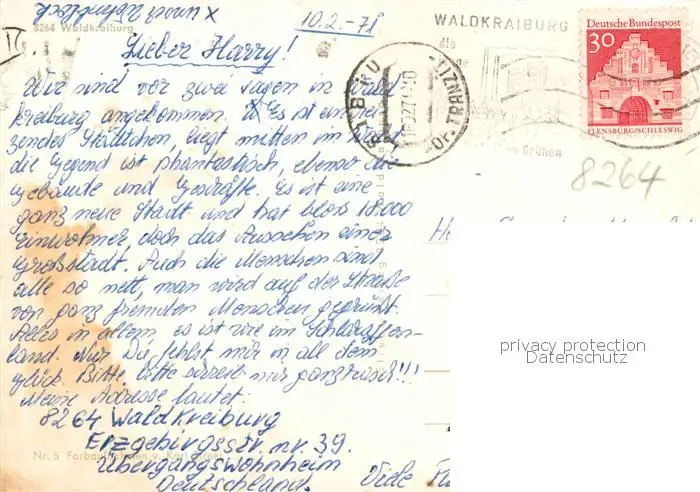 x unserer
8264 Waldkraiburg
10.2.-71
Lieber Harry!
Wir sind vor zwei Tagen in Wald
kreiburg angekommen. Es ist ein rei
zendes Städtchen, liegt mitten im
die Gegend ist phantastisch, ebenso die
Gebäude und Geschäfte. Es ist eine
ganz neue Stadt und hat bloss 18.000
Einwohner, doch das Aussehen einer
Großstadt. Auch die Menschen sind
alle so nett, man wird auf der Straße
von ganz fremden Menschen gegrüßt.
Alles in allem, es ist wie im Schlaraffen-
land. Nur Du fehlst mir in all dem
Glück. Bitte, bitte schreib mir ganz rasch!!!
Meine Adresse lautet:
8264 Waldkreiburg
Erzgebirgsstr. nr. 39.
Übergangswohnheim
Deutschland.
Viele
Nr. 5 Farbaufnahmen v. Karl
WALDKRAIBURG
die
im Grünen
Deutsche Bundespost
30
FLENSBURG/SCHLESWIG
8264
privacy protection
Datenschutz